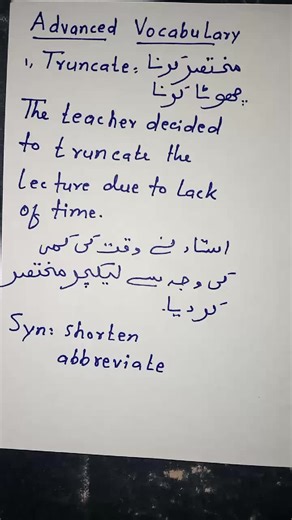 Advanced Vocabulary
1, Truncate: مختصر کرنا
چھوٹا کرنا
The teacher decided
to truncate the
lecture due to lack
of time.
استاد نے وقت کی کمی
کی وجہ سے لیکچر مختصر
کر دیا.
Syn: shorten
abbreviate